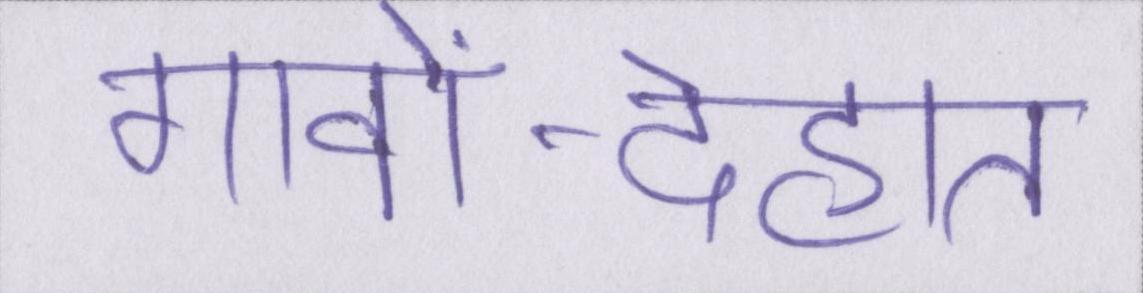 गावों-देहात